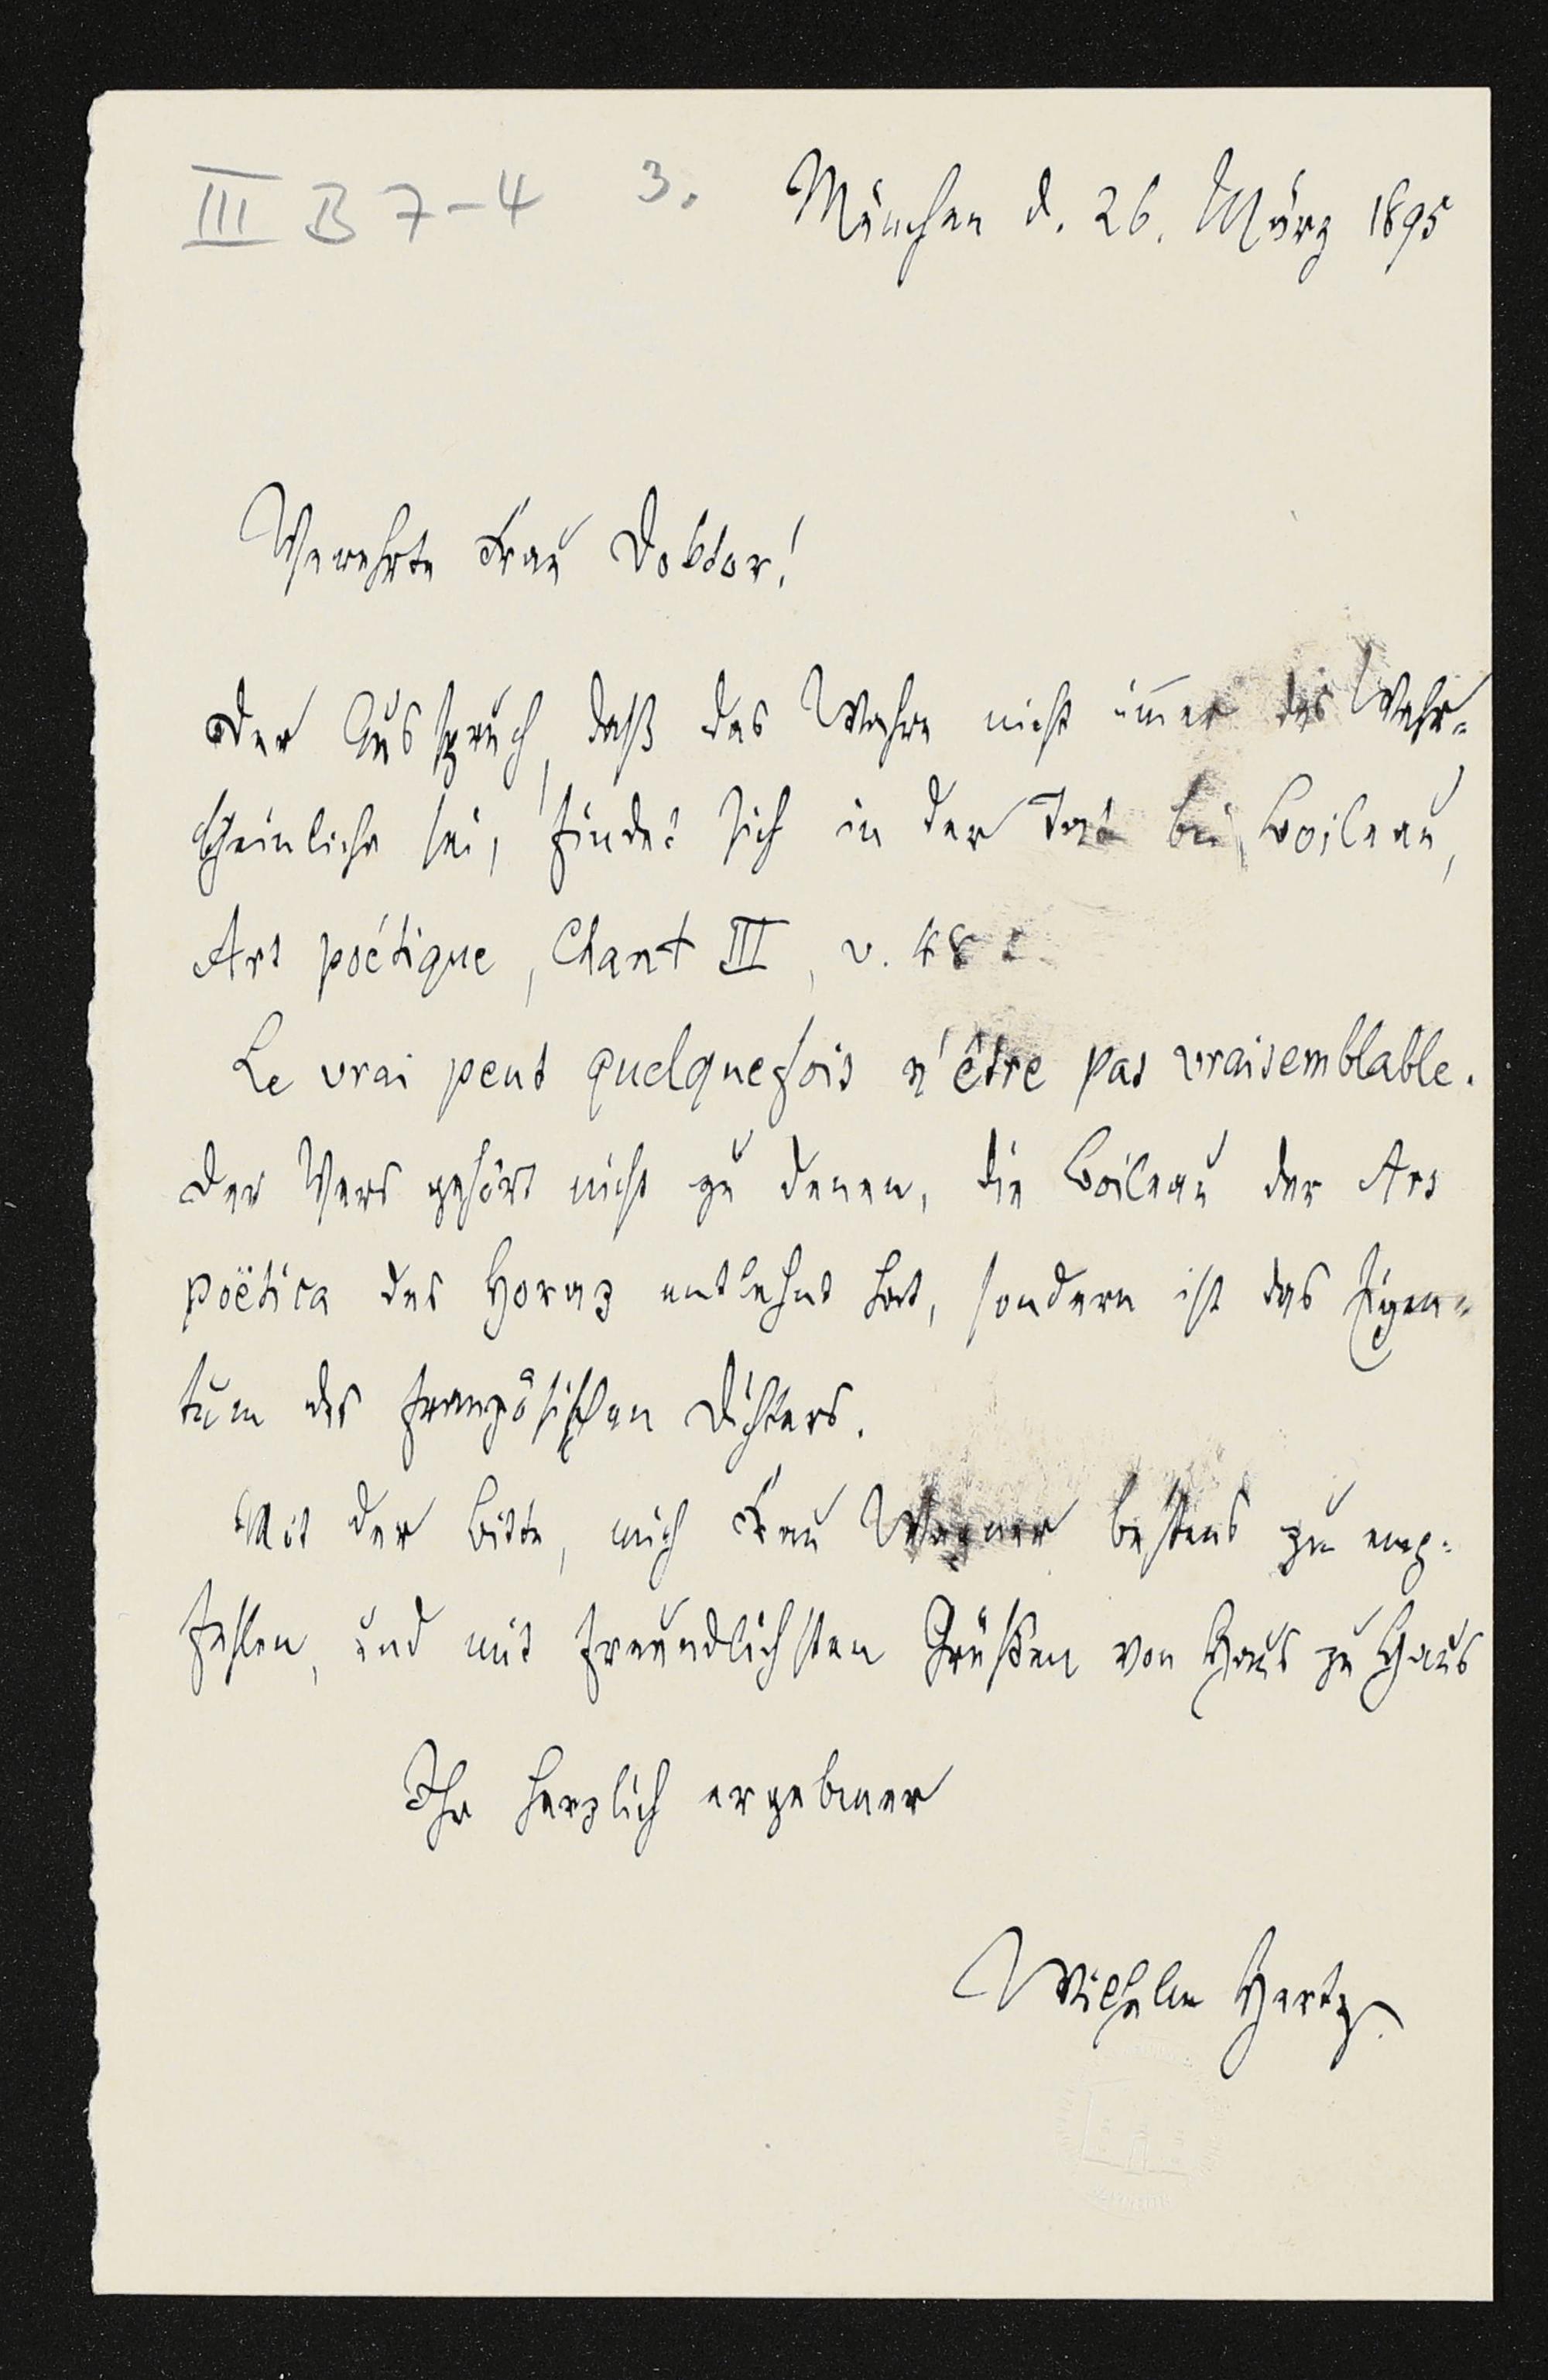 III B 7-4 3. München d. 26. März 1895
Verehrte Frau Doktor!
Der Ausspruch, daß das Wahre nicht im̅er das Wahr-
scheinliche sei, findet sich in der Tat bei Boileau,
Art poétique, Chant III, v. 48
Le vrai peut quelquefois n'être pas vraisemblable.
Der Vers gehört nicht zu denen, die Boileau der Ars
poëtica des Horaz entlehnt hat, sondern ist das Eigen-
tum des französischen Dichters.
Mit der Bitte, mich Frau Wagner bestens zu emp-
fehlen, und mit freundlichsten Grüßen von Haus zu Haus
Ihr herzlich ergebener
Wilhelm Hertz.